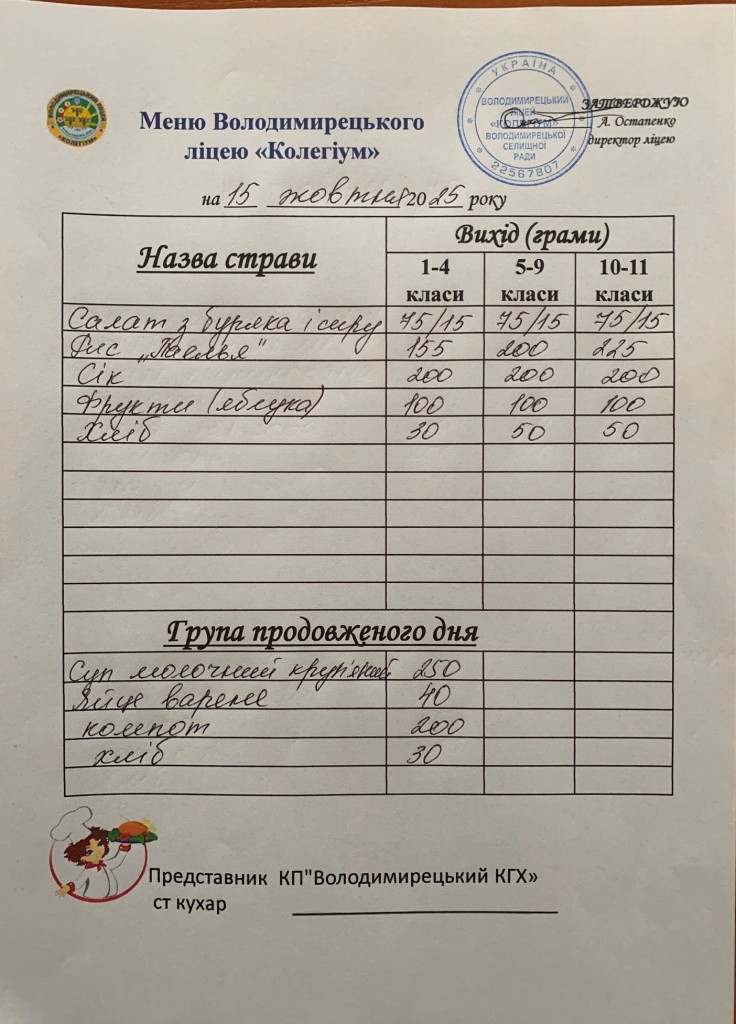 ВОЛОДИМИРЕЦЬКИЙ ЛІЦЕЙ
«КОЛЕГІУМ»
Меню Володимирецького
ліцею «Колегіум»
УКРАЇНА
ВОЛОДИМИРЕЦЬКИЙ
ЛІЦЕЙ
«КОЛЕГІУМ»
ВОЛОДИМИРЕЦЬКОЇ
СЕЛИЩНОЇ
РАДИ
22567807
ЗАТВЕРДЖУЮ
А. Остапенко
директор ліцею
на 15 жовтня 2025 року
Назва страви Вихід (грами)
1-4 класи 5-9 класи 10-11 класи
Салат з буряка і сиру 75/15 75/15 75/15
Рис „Паелья" 155 200 225
Сік 200 200 200
Фрукти (яблука) 100 100 100
Хліб 30 50 50
Група продовженого дня
Суп молочний круп'яний 250
Яйце варене 40
компот 200
хліб 30
Представник КП"Володимирецький КГХ»
ст кухар